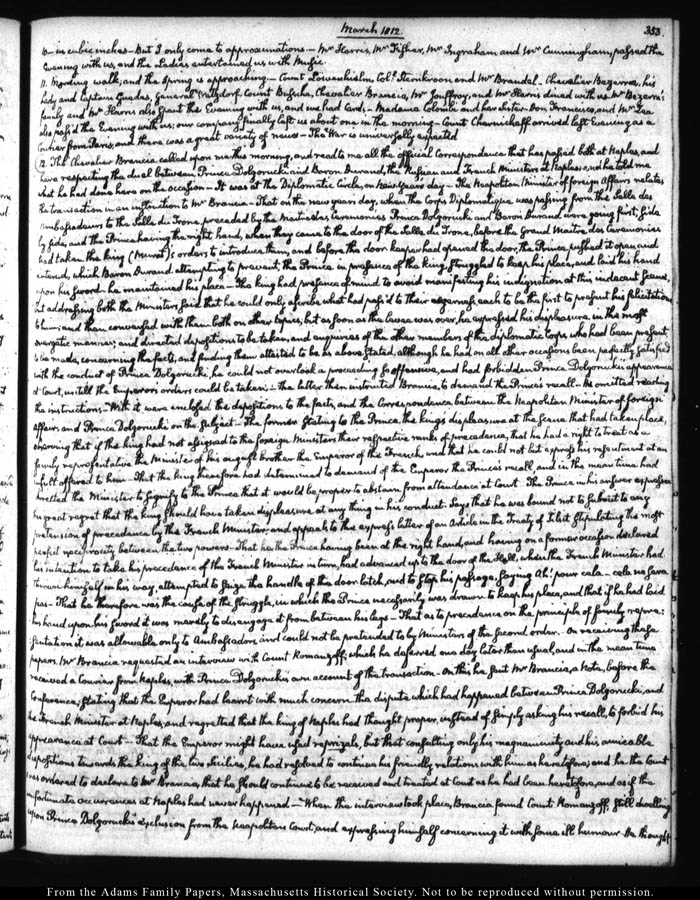 March 1812.
353.
in cubic inches — But I only come to approximations. — Mr Harris, Mr Fisher, Mr Ingraham and Mr Cunningham, passed the
Evening with us, and the Ladies entertained us with Music.
11. Morning walk, and the Spring is approaching — Count Lowenhielm, Coll. and Mr Brandel. Chevalier Bezerra, his
Lady and Captain Guedes, General Watzdorf, Count Bussche, Chevalier Brancia, Mr Jouffroy, and Mr Harris dined with us. Mr Bezerra's
family and Mr Harris also spent the Evening with us, and we had Cards. — Madame Colombi and her sister, Don Francisco, and Mr Zea
also pass'd the Evening with us; our company finally left us about one in the morning — Count Czernicheff arrived last Evening as a
Courier from Paris, and there was a great variety of news — The War is universally expected
12. The Chevalier Brancia called upon me this morning, and read to me all the official Correspondence that has passed both at Naples, and
here respecting the duel between Prince Dolgorucki and Baron Durand, the Russian and French Ministers at Naples; and he told me
what he had done here on the occasion — It was at the Diplomatic Circle, on New Years day — The Neapolitan Minister of foreign Affairs relates
the transaction in an instruction to Mr Brancia — That on the new years day, when the Corps Diplomatique was passing from the Salle des
Ambassadeurs to the Salle du Trone preceded by the Master des Ceremonies Prince Dolgorucki and Baron Durand were going first, side
by side, and the Prince having the right hand, when they came to the door of the Salle du Trone, before the Grand Maitre des Ceremonies
had taken the King (Murat)'s orders to introduce them, and before the door keeper had opened the door, the Prince, pushed it open and
entered, which Baron Durand attempting to prevent, the Prince in presence of the king, struggled to keep his place, and laid his hand
upon his sword — he maintained his place — The king had presence of mind to avoid manifesting his indignation at this indecent scene,
but addressing both the Ministers, said that he could only ascribe what had pass'd to their eagerness, each to be the first to present his felicitations
to him; and then conversed with them both on other topics, but as soon as the levee was over, he expressed his displeasure in the most
energetic manner; and directed depositions to be taken, and enquiries of the other members of the diplomatic Corps who had been present
to be made, concerning the facts, and finding them attested to be as above stated, although he had on all other occasions been perfectly satisfied
with the conduct of Prince Dolgorucki, he could not overlook a proceeding so offensive, and had forbidden Prince Dolgorucki's appearance
at Court, untill the Emperor's orders could be taken. — the letter then instructed Brancia, to demand the Prince's recall — He omitted reading
the instructions — With it were enclosed the depositions to the facts, and the Correspondence between the Neapolitan Minister of foreign
affairs and Prince Dolgorucki on the subject — The former stating to the Prince, the king's displeasure at the scene that had taken place,
observing that if the king had not assigned to the foreign Ministers their respective ranks of precedence, that he had a right to treat as a
family representative the Minister of his august brother the Emperor of the French, and that he could not but express his resentment at an
insult offered to him — That the king therefore had determined to demand of the Emperor the Prince's recall, and in the mean time had
directed the Minister to signify to the Prince that it would be proper to abstain from attendance at Court. The Prince in his answer expresses
his great regret that the king should have taken displeasure at any thing in his conduct. Says that he was bound not to submit to any
pretension of precedence by the French Minister, and appeals to the express letter of an Article in the Treaty of Tilsit stipulating the most
perfect reciprocity between the two powers — That he the Prince having been at the right hand, and having on a former occasion declared
his intention to take his precedence of the French Minister in turn, had advanced up to the door of the Hall, when the French Minister had
thrown himself in his way, attempted to seize the handle of the door latch, and to stop his passage, saying Ah! pour cela — cela ne sera
pas — That he therefore was the cause of the struggle, in which the Prince necessarily was drawn to keep his place, and that if he had laid
his hand upon his sword it was merely to disengage it from between his legs — That as to precedence on the principle of family repre=
sentation it was allowable only to Ambassadors and could not be pretended to by Ministers of the second order. On receiving these
papers Mr Brancia requested an interview with Count Romanzoff, which he deferred one day later than usual, and in the mean time
received a Courier from Naples, with Prince Dolgorucki's own account of the transaction. On this he sent Mr Brancia, a Note, before the
Conference, stating that the Emperor had learnt with much concern the dispute which had happened between Prince Dolgorucki, and
the French Minister at Naples, and regretted that the king of Naples had thought proper, instead of simply asking his recall, to forbid his
appearance at Court — That the Emperor might have used reprizals, but that consulting only his magnanimity and his amicable
dispositions towards the king of the two Sicilies, he had resolved to continue his friendly relations with him as heretofore; and he the Count
was ordered to declare to Mr Brancia, that he should continue to be received and treated at Court as he had been heretofore, and as if the
unfortunate occurrences at Naples had never happened — When the interview took place, Brancia found Count Romanzoff, still dwelling
upon Prince Dolgorucki's exclusion from the Neapolitan Court, and expressing himself concerning it with some ill humour. He thought
From the Adams Family Papers, Massachusetts Historical Society. Not to be reproduced without permission.